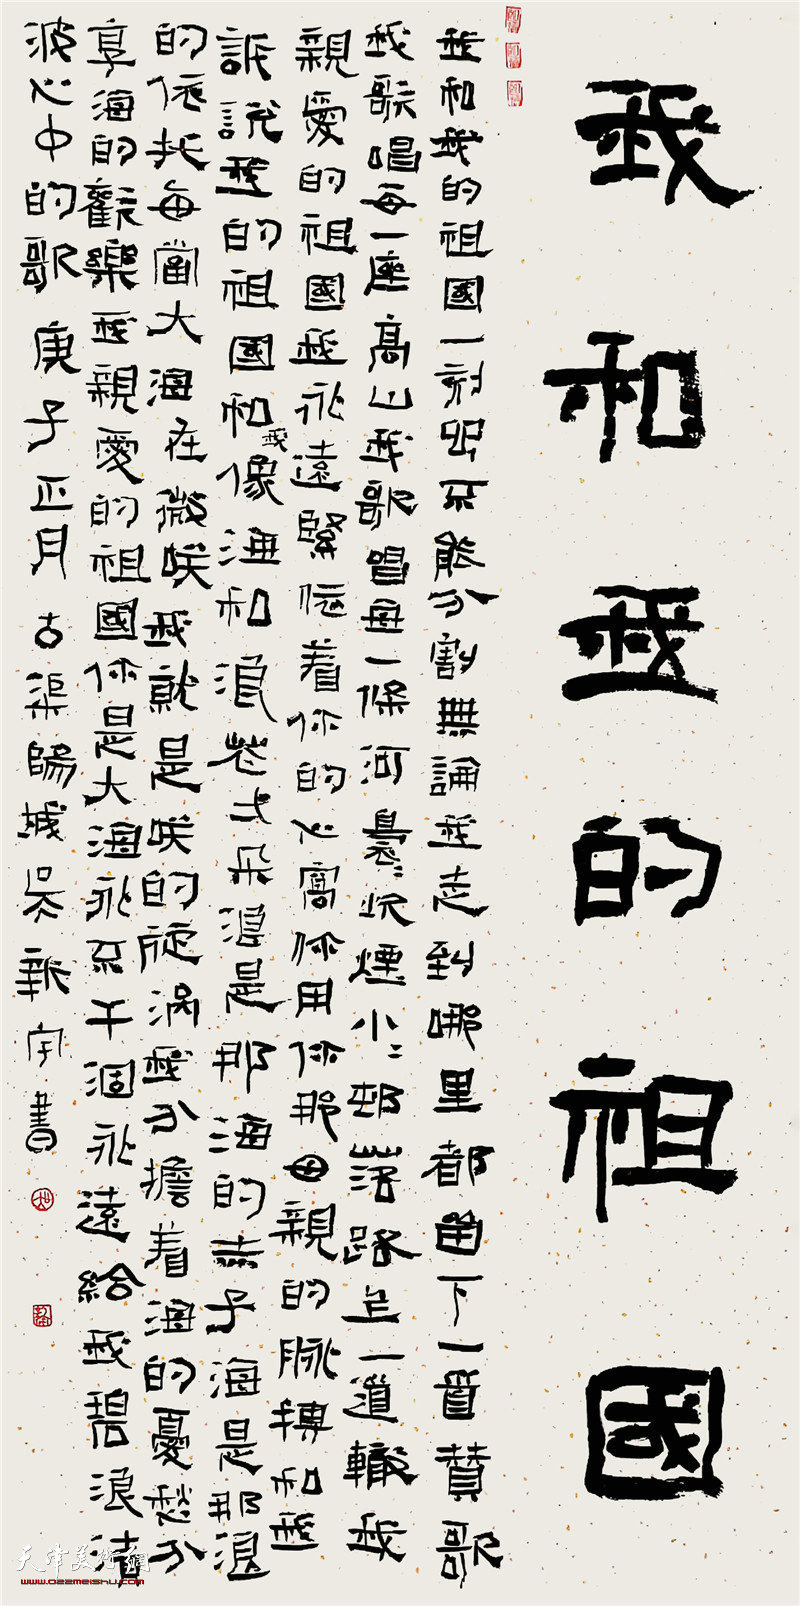 我和我的祖國
我和我的祖國一刻也不能分割無論我走到哪里都留下一首贊歌
我歌唱每一座高山我歌唱每一條河裊〻炊煙小〻邨落路上一道轍我
親愛的祖國我永遠緊依着你的心窩你用你那母親的脉搏和我
訴説我的祖國和我像海和浪花弌朵浪是那海的赤子海是那浪
的依托每當大海在微咲我就是咲的旋涡我分擔着海的憂愁分
享海的歡樂我親愛的祖國你是大海永不干涸永遠給我碧浪清
波心中的歌 庚子正月 古渠陽城吴新宇書
天津美術網
www.022meishu.com